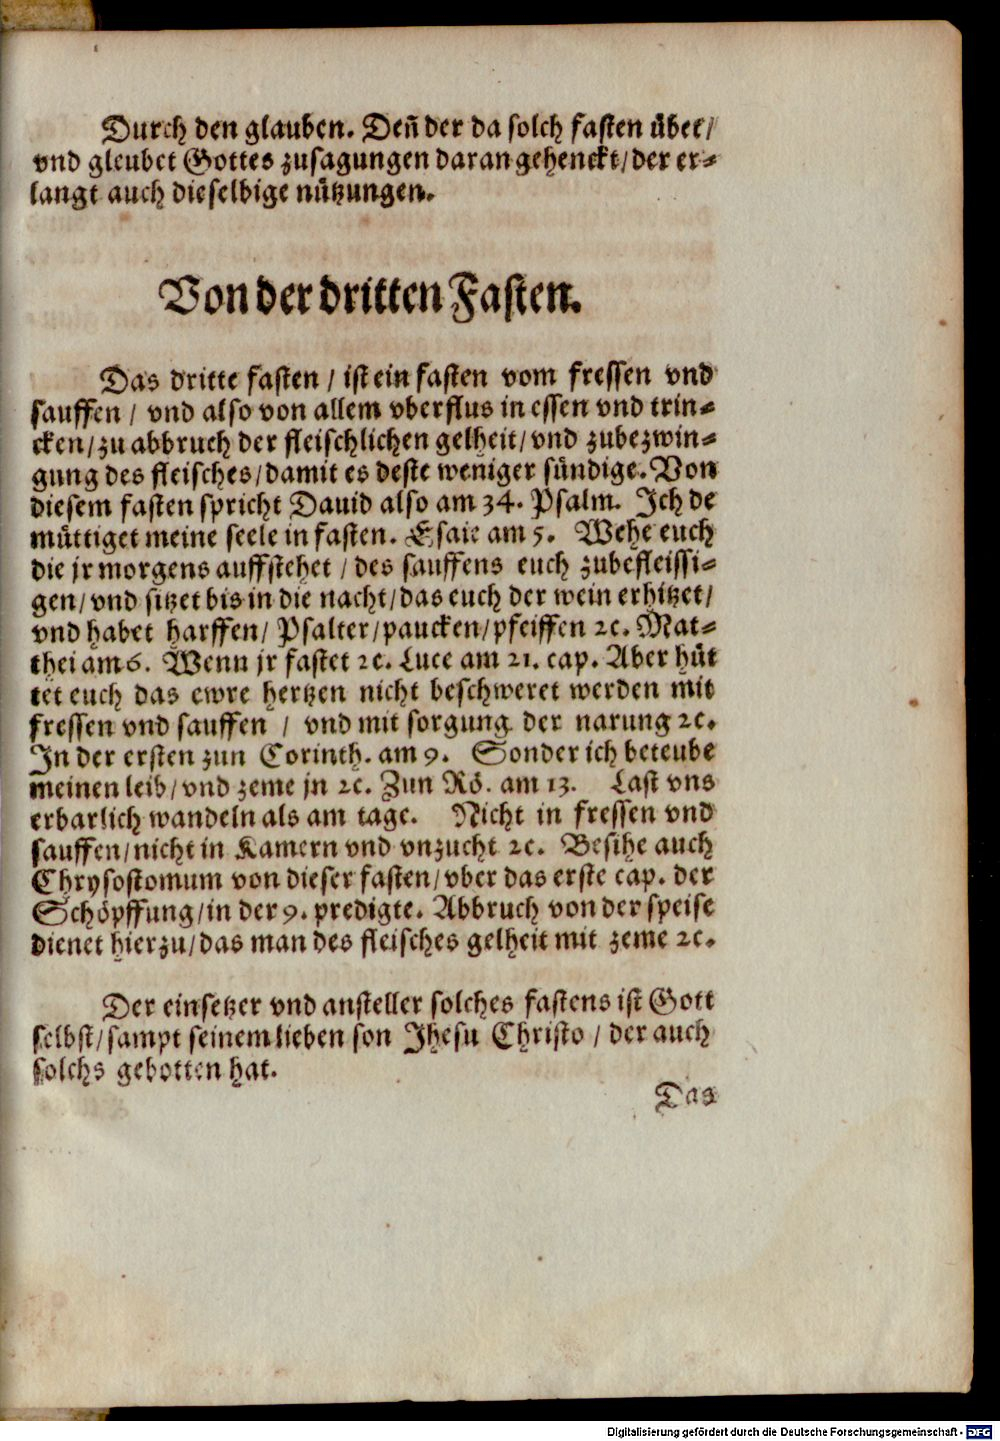 Durch den glauben. Deñ der da solch fasten übet/
vnd gleubet Gottes zusagungen daran gehenckt/der er-
langt auch dieselbige nützungen.
Von der dritten Fasten.
Das dritte fasten / ist ein fasten vom fressen vnd
sauffen / vnd also von allem vberflus in essen vnd trin-
cken/zu abbruch der fleischlichen gelheit/vnd zubezwin-
gung des fleisches/damit es deste weniger sündige. Von
diesem fasten spricht Dauid also am 34. Psalm. Ich de
müttiget meine seele in fasten. Esaie am 5. Wehe euch
die jr morgens auffstehet / des sauffens euch zubefleissi-
gen/vnd sitzet bis in die nacht/das euch der wein erhitzet/
vnd habet harffen/ Psalter/paucken/pfeiffen ꝛc. Mat-
thei am 6. Wenn jr fastet ꝛc. Luce am 21. cap. Aber hüt
tet euch das ewre hertzen nicht beschweret werden mit
fressen vnd sauffen / vnd mit sorgung der narung ꝛc.
In der ersten zun Corinth. am 9. Sonder ich beteube
meinen leib/vnd zeme jn ꝛc. Zun Rö. am 13. Last vns
erbarlich wandeln als am tage. Nicht in fressen vnd
sauffen/nicht in Kamern vnd vnzucht ꝛc. Besihe auch
Chrysostomum von dieser fasten/vber das erste cap. der
Schöpffung/in der 9. predigte. Abbruch von der speise
dienet hierzu/das man des fleisches gelheit mit zeme ꝛc.
Der einsetzer vnd ansteller solches fastens ist Gott
selbst/sampt seinem lieben son Jhesu Christo / der auch
solchs gebotten hat.
Das
Digitalisierung gefördert durch die Deutsche Forschungsgemeinschaft - DFG